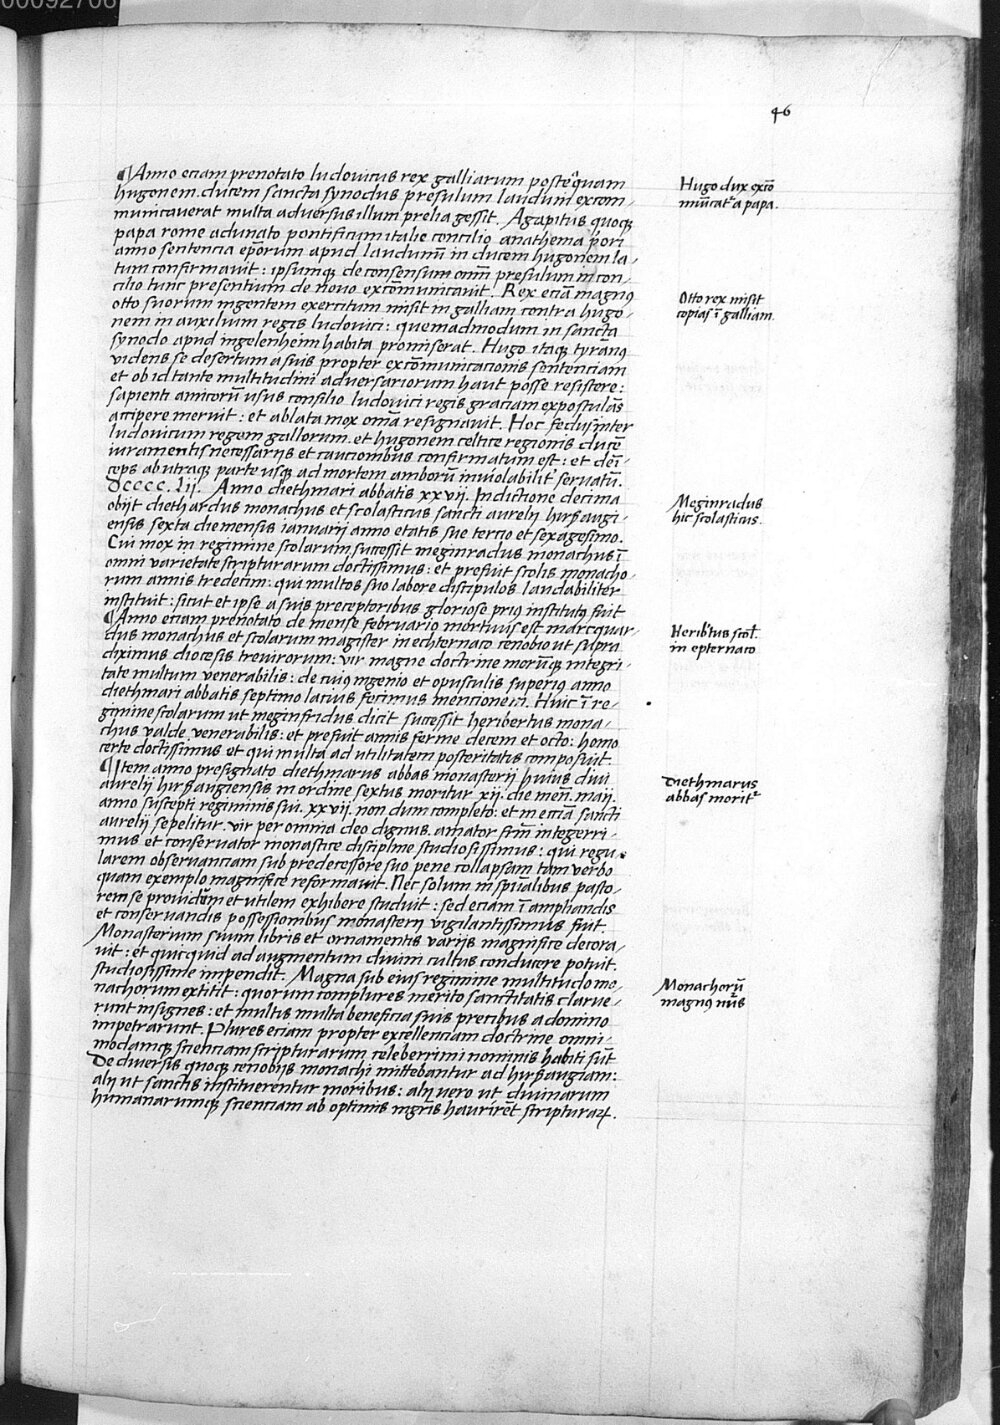 00092706
46
¶Anno eciam prenotato ludovicus rex galliarum postequam
hugonem ducem sancta synodus presulum laudum excom-
municauerat multa adversus illum prelia gessit. Agapitus quoqȝ
papa rome adunato pontificum italie concilio anathema priori
anno sentencia ep̄orum apud laudunū in ducem hugonem la-
tum confirmavit: ipsumqȝ de consensum omn̄i presulum in con-
cilio tunc presentium de novo excōmunicavit. Rex eciā magnꝰ
otto suorum ingentem exercitum misit in galliam contra hugo-
nem in auxilium regis ludovici: quemadmodum in sancta
synodo apud ingelenheim habita promiserat. Hugo itaqȝ tyrānꝰ
videns se desertum a suis propter excōmunicacionis sentenciam
et ob id tante multitudini adversariorum haut posse resistere:
sapienti amicorū usus consilio ludovici regis graciam expostulās
accipere meruit: et ablata mox omīa resignavit. Hoc fedus inter
ludovicum regem gallorum et hugonem celtice regionis ducē
iuramentis necessarijs et caucionibus confirmatum est: et deī-
ceps ab utraqȝ parte usqȝ ad mortem amborū inviolabilit̉ servatū.
DCCCC. lii. Anno diethmari abbatis xxvij. Indictione decima
obijt diethardus monachus et scolasticus sancti aurelij hirsaugi-
ensis sexta die mensis ianuarij anno etatis sue tercio et sexagesimo.
Cui mox in regimine scolarum successit meginradus monachus ī
omni varietate scripturarum doctissimus: et prefuit scolis monacho-
rum annis tredecim: qui multos suo labore discipulos laudabiliter
instituit: sicut et ipse a suis preceptoribus gloriose priꝰ institutꝰ fuit
¶Anno eciam prenotato de mense februario mortuus est marcquar-
dus monachus et scolarum magister in echternaco cenobio ut supra
diximus diocesis trevirorum: vir magne doctrine morūqȝ integri-
tate multum venerabilis: de cuiꝰ ingenio et opusculis superiꝰ anno
diethmari abbatis septimo lacius fecimus mencionem. Huic ī re-
gimine scolarum ut meginfridus dicit successit heribertus mona-
chus valde venerabilis: et prefuit annis ferme decem et octo: homo
certe doctissimus et qui multa ad utilitatem posteritatis composuit
¶Item anno presignato diethmarus abbas monasterij huius divi
aurelij hirsaugiensis in ordine sextus moritur xij. die men̄. maij.
anno suscepti regiminis sui. xxvij. non dum completo: et in eccīa sancti
aurelij sepelitur. vir per omnia deo dignus. amator frm̄ integerri-
mus et conservator monastice discipline studiosissimus: qui regu-
larem observanciam sub predecessore suo pene collapsam tam verbo
quam exemplo magnifice reformavit. Nec solum in sp̄ualibus pasto-
rem se providum et utilem exhibere studuit: sed eciam ī ampliandis
et conservandis possessionibus monasterij vigilantissimus fuit.
Monasterium suum libris et ornamentis varijs magnifice decora-
vit: et quicquid ad augmentum divini cultus conducere potuit.
studiosissime impendit. Magna sub eius regimine multitudo mo-
nachorum extitit: quorum complures merito sanctitatis clarue-
runt insignes: et multis multa beneficia suis precibus a domino
impetrarunt. Plures eciam propter excellenciam doctrine omni-
modamqȝ scienciam scripturarum celeberrimi nominis habiti sūt
De diversis quoqȝ cenobijs monachi mittebantur ad hirsaugiam:
alij ut sanctis instituerentur moribus: alij vero ut divinarum
humanarumqȝ scienciam ab optimis mgr̄is haurirēt scripturaꝝ.
Hugo dux excō
mūicat᷑ a papa.
Otto rex misit
copias ī galliam.
Meginradus
hic scolasticus.
Herib̉tus scol̄.
in epternaco
Diethmarus
abbas morit᷑
Monachorū
magnꝰ nūs